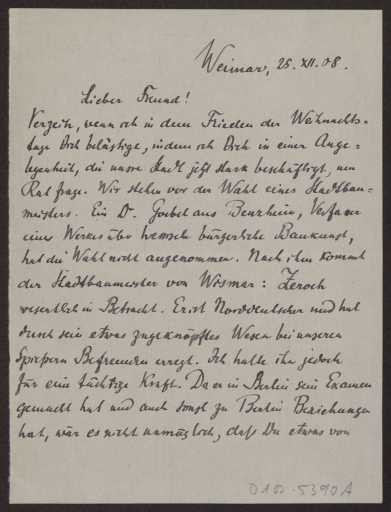 Weimar, 25. XII. 08.
Lieber Freund!
Verzeih, wenn ich in dem Frieden der Weihnachts-
tage Dich belästige, indem ich Dich in einer Ange-
legenheit, die unsre Stadt jetzt stark beschäftigt, um
Rat frage. Wir stehen vor der Wahl eines Stadtbau-
meisters. Ein D. Goebel aus Bensheim, Verfasser
eines Werkes über hessische bürgerliche Baukunst,
hat die Wahl nicht angenommen. Nach ihm kommt
der Stadtbaumeister von Wismar:
wesentlich in Betracht. Er ist Norddeutscher und hat
durch sein etwas zugeknöpftes Wesen bei unseren
Spießern Befremden erregt. Ich halte ihn jedoch
für eine tüchtige Kraft. Da er in Berlin sein Examen
gemacht hat und auch sonst zu Berlin Beziehungen
hat, wär es nicht unmöglich, daß Du etwas von